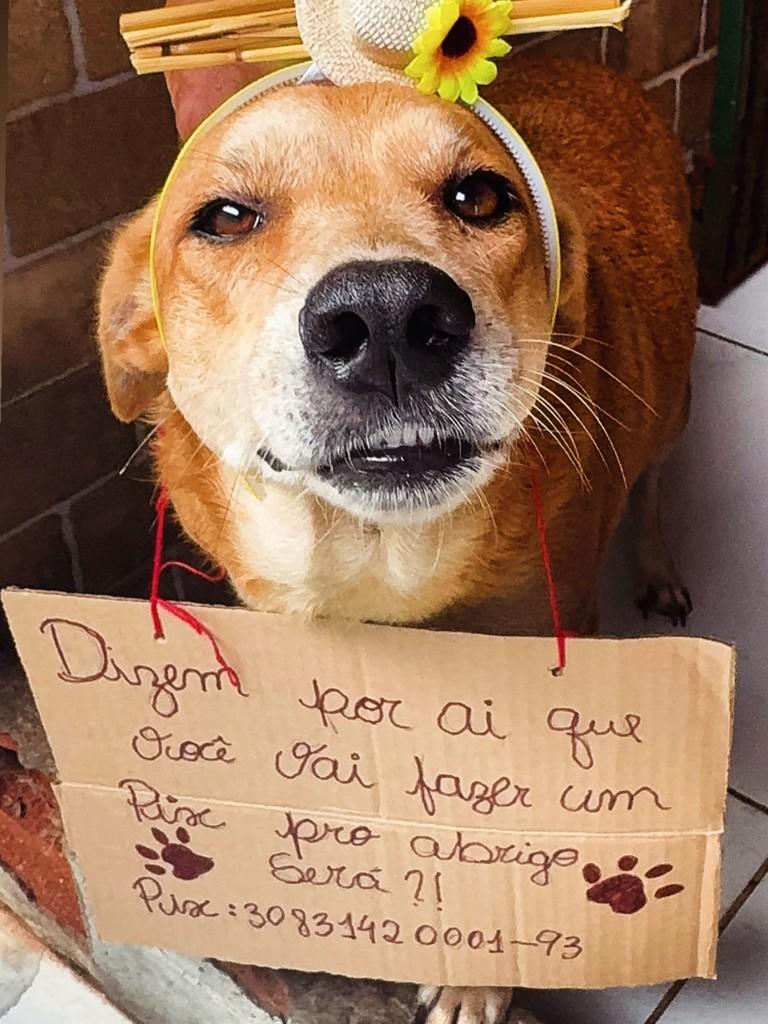 Dizem por ai que
você vai fazer um
Pix pro abrigo
Será ?!
Pix: 3083142 0001-93